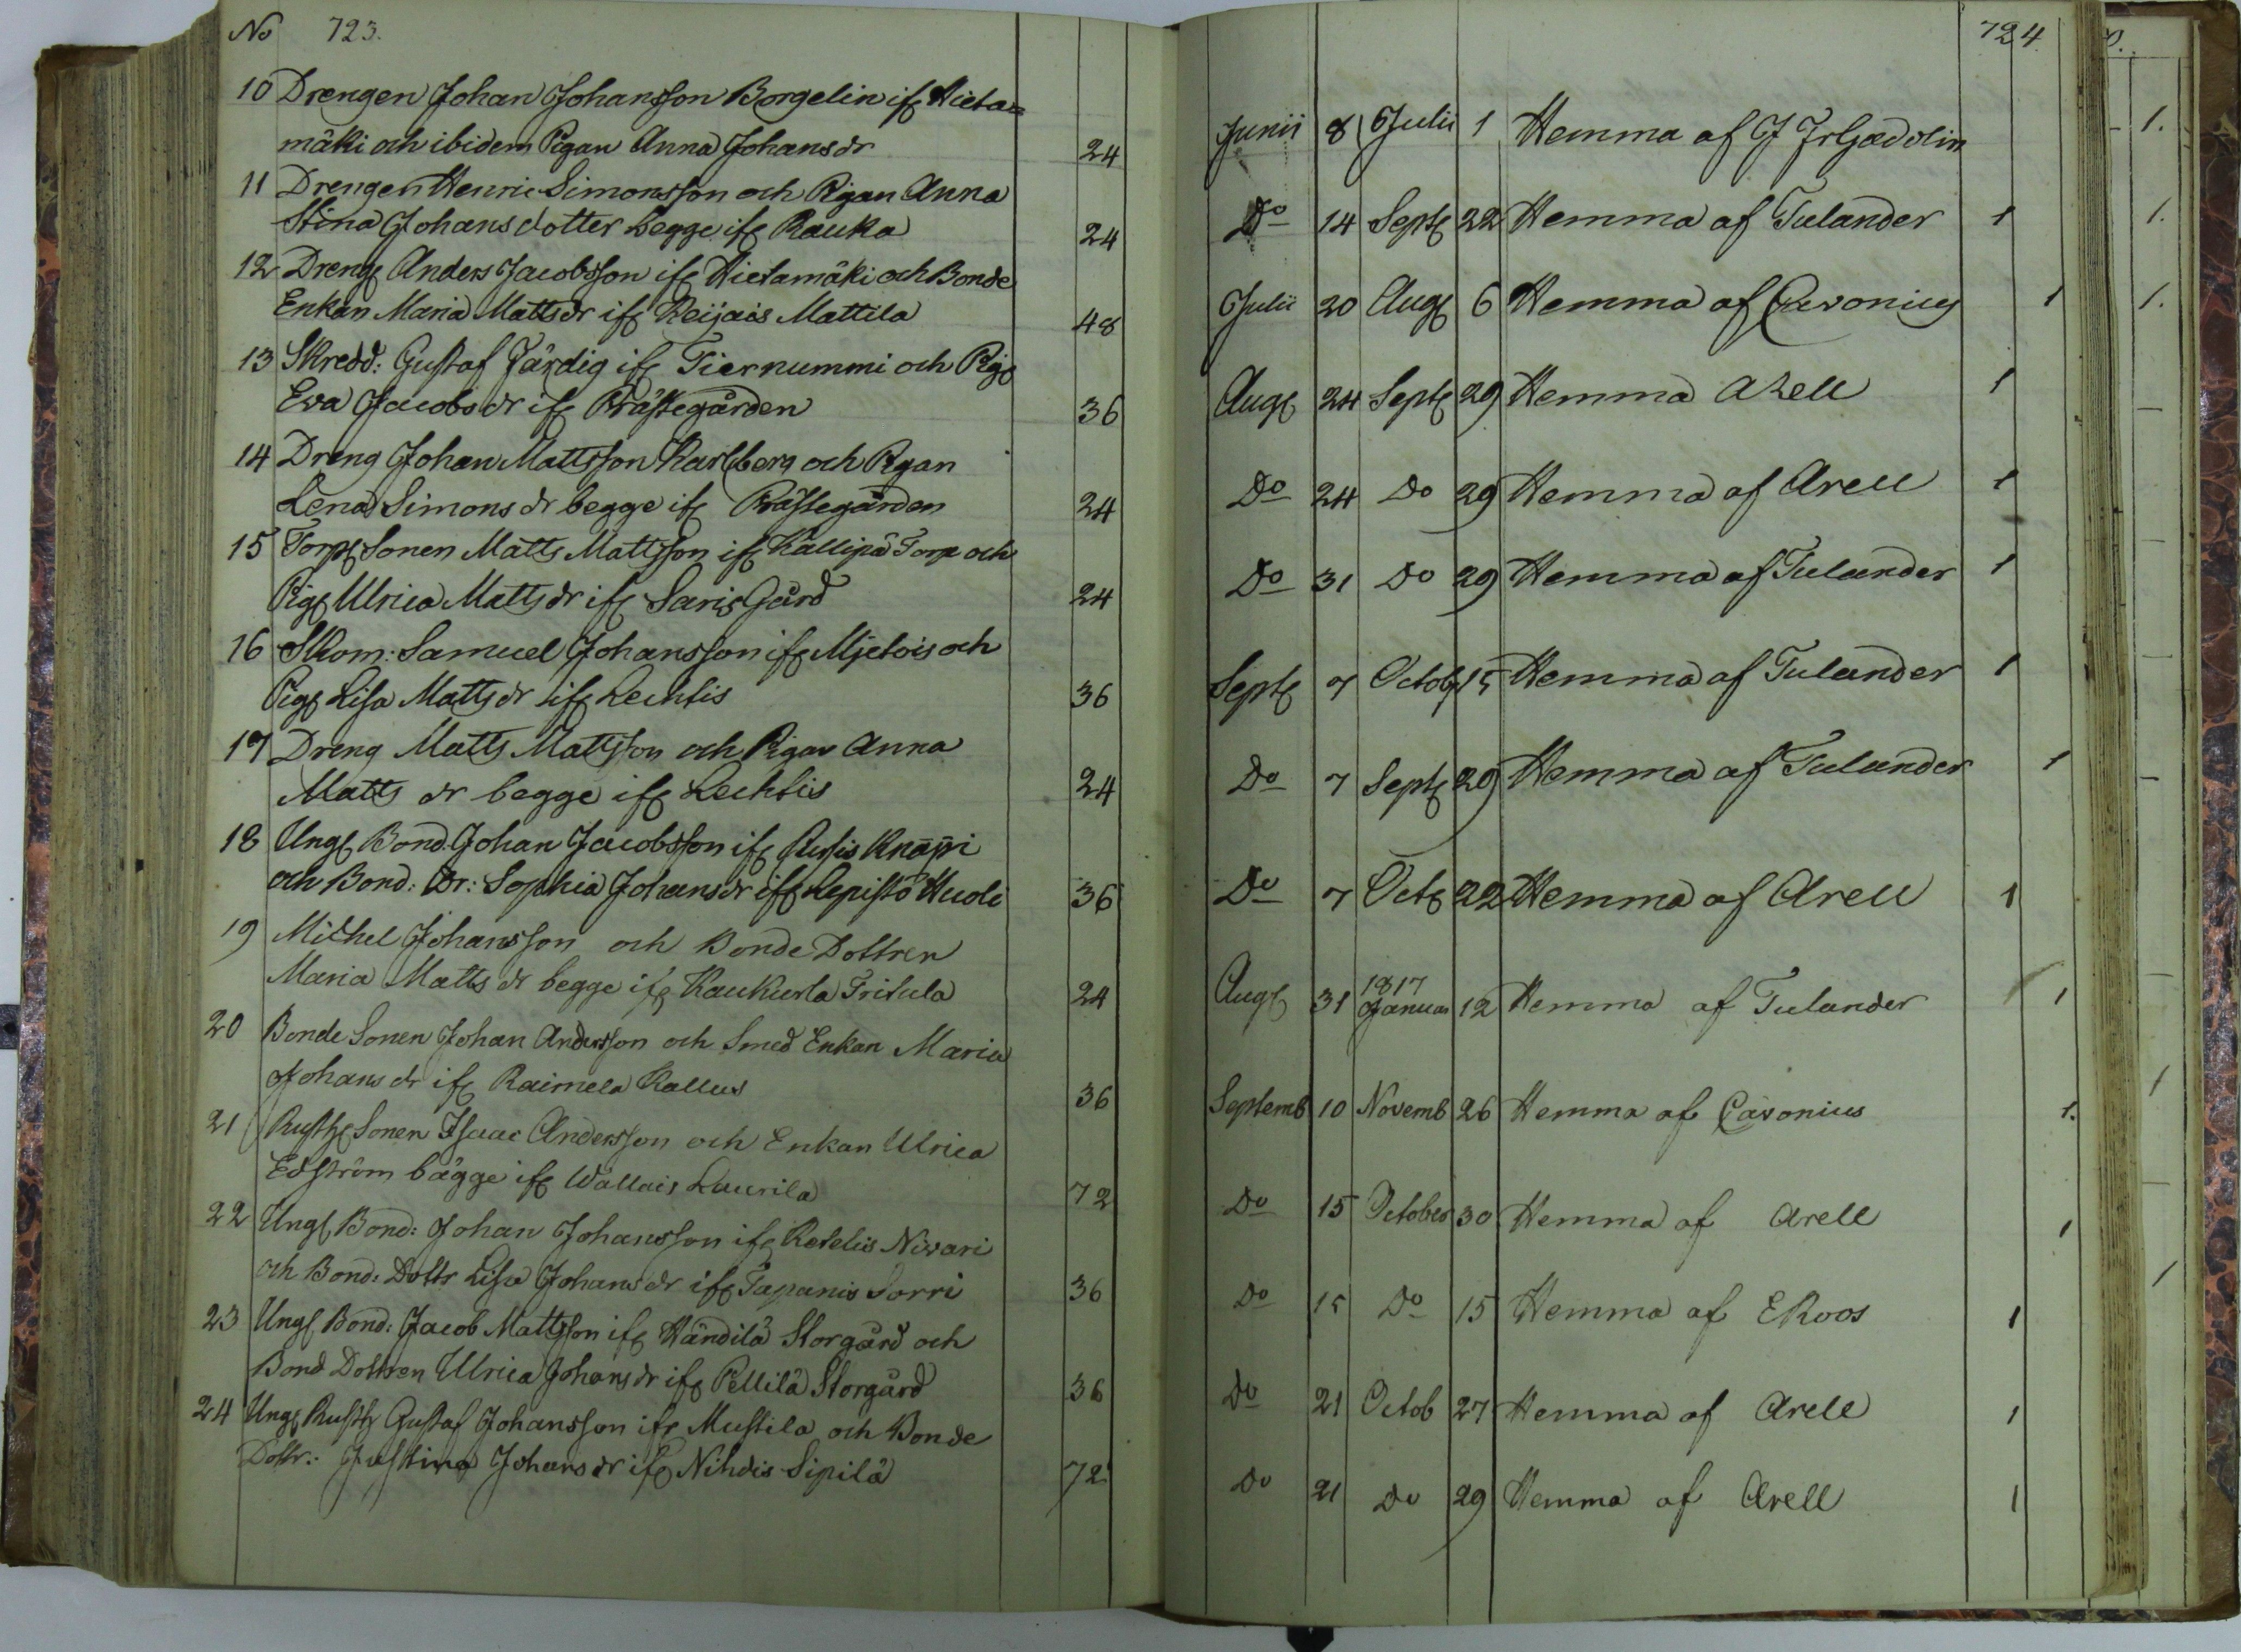 No 723.
10 Drengen Johan Johansson Borgelin ifr Hieta=
mäki och ibidem Pigan Anna Johansdr 24
11 Drengen Henric Simonsson och Pigan Anna
Stina Johansdotter begge ifr Rauka 24
12 Dreng Anders Jacobsson ifr Hietamäki och Bonde
Enkan Maria Mattsdr ifr Keijais Mattila 48
13 Skredd: Gustaf Färdig ifr Tiernummi och Pig
Eva Jacobsdr ifr Prästegården 36
14 Dreng Johan Mattsson Karlberg och Pigan
Lena Simonsdr begge ifr Prästegården 24
15 Torp Sonen Matts Mattsson ifr Kallipä Torp och
Pig Ulrica Mattsdr ifr Saris Gård 24
16 Skom: Samuel Johansson ifr Mjetois och
Pig Lisa Mattsdr ifr Lechtis 36
17 Dreng Matts Mattsson och Pigan Anna
Matts dr begge ifr Lechtis 24
18 Ungl Bond Johan Jacobsson ifr Knäpi
och Bond: Dr: Sophia Johansdr ifr Lepistö Huoli 36
19 Michel Johansson och Bonde Dottren
Maria Matts dr begge ifr Kaukurla Tritula 24
20 Bonde Sonen Johan Andersson och Smed Enkan Maria
Johans dr ifr Raimela Kallus 36
21 Rusth Sonen Isaac Andersson och Enkan Ulrica
Edström bägge ifr Wallais Laurila 72
22 Ungl Bond: Johan Johansson ifr Retelis Nivari
och Bond: Dottr Lisa Johansdr ifr Tapanis Sorri 36
23 Ungl Bond: Jacob Mattsson ifr Händilä Storgård och
Bond Dottren Ulrica Johansdr ifr Pellilä Storgård 36
24 Ung Rusth Gustaf Johansson ifr Mustila och Bonde
Dottr: Justina Johansdr ifr Nihdis Sipilä 72
724
Junii 8 Julii 1 Hemma af J
Do 14 Sept 22 Hemma af Tulander 1
Julii 20 Aug 6 Hemma af Cavonius 1
Aug 24 Sept 29 Hemma Arell 1
Do 24 Do 29 Hemma af Arell 1
Do 31 Do 29 Hemma af Tulander 1
Sept 7 Octob 15 Hemma af Tulander 1
Do 7 Sept 29 Hemma af Tulander 1
Do 7 Oct 22 Hemma af Arell 1
Aug 31 1817 Januar 12 Hemma af Tulander 1
Septemb 10 Novemb 26 Hemma af Cavonius 1.
Do 15 October 30 Hemma af Arell 1
Do 15 Do 15 Hemma af E Roos 1
Do 21 Octob 27 Hemma af Arell 1
Do 21 Do 29 Hemma af Arell 1
1.
1.
1.
1
1